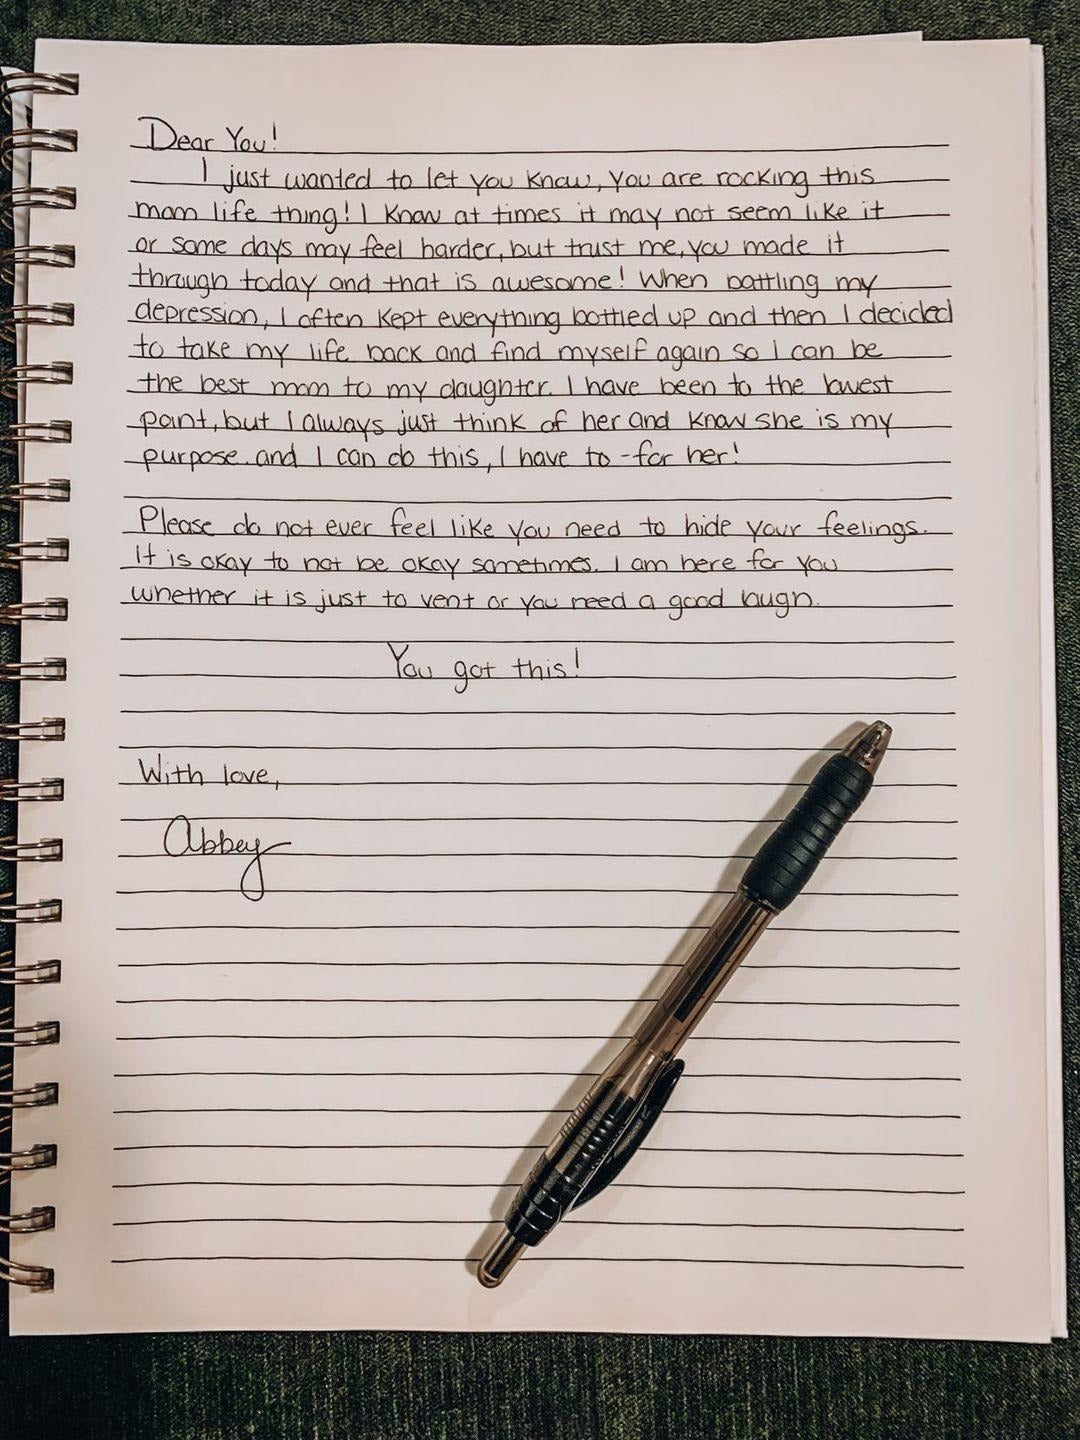 Dear You!
I just wanted to let you know, you are rocking this
mom life thing! I know at times it may not seem like it
or some days may feel harder, but trust me, you made it
through today and that is awesome! When battling my
depression, I often kept everything bottled up and then I decided
to take my life back and find myself again so I can be
the best mom to my daughter. I have been to the lowest
point, but I always just think of her and know she is my
purpose. and I can do this, I have to - for her!
Please do not ever feel like you need to hide your feelings.
It is okay to not be okay sometimes. I am here for you
whether it is just to vent or you need a good laugh.
You got this!
With love,
Abbey